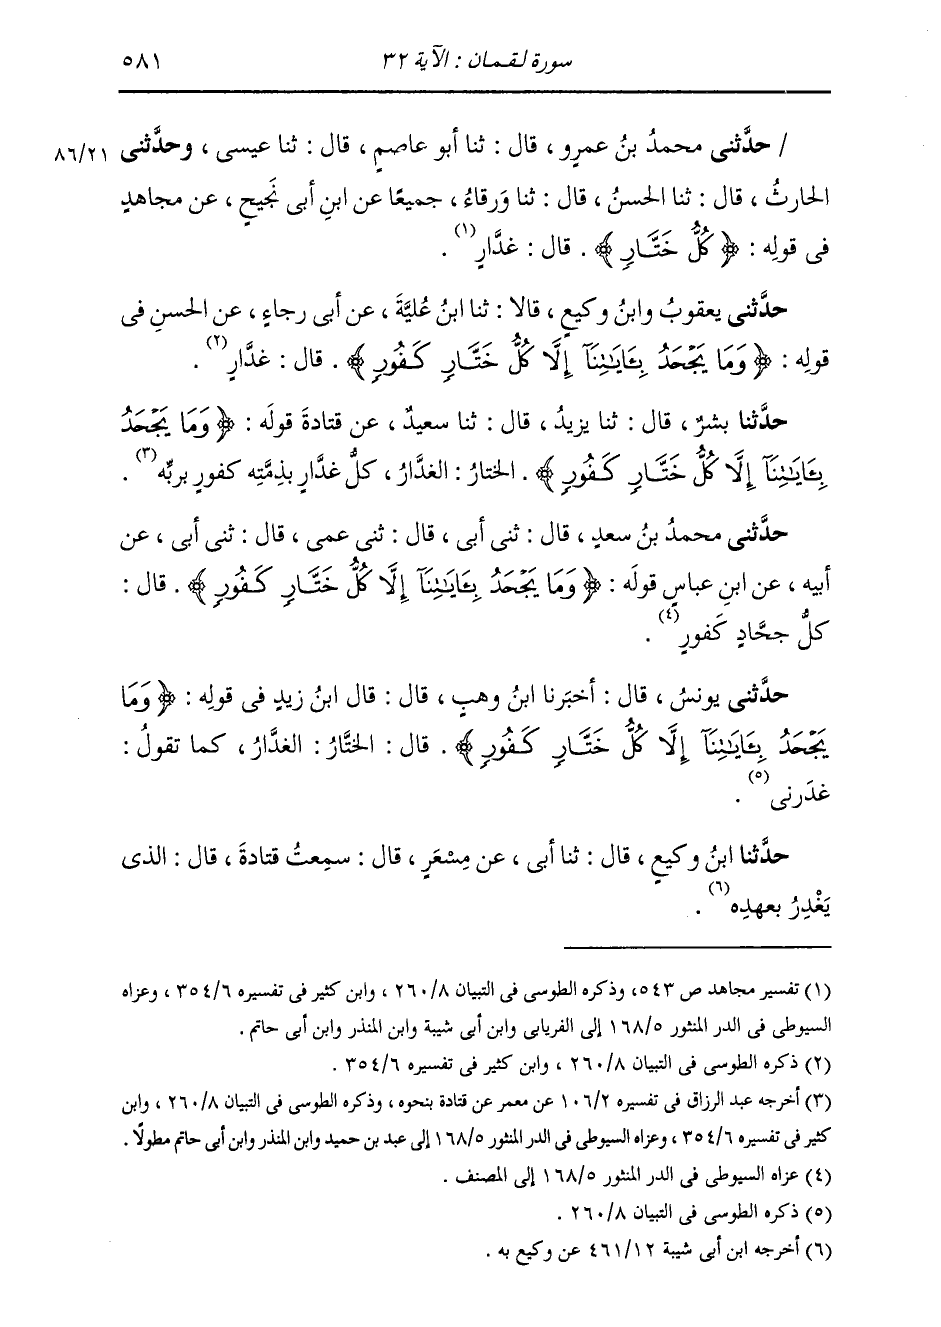 سورة لقمان : الآية ٣٢ ٥٨١
/ حدَّثنى محمدُ بنُ عمرٍو ، قال : ثنا أبو عاصمٍ ، قال : ثنا عيسى ، وحدَّثنى ٨٦/٢١
الحارثُ ، قال : ثنا الحسنُ ، قال : ثنا وَرقاءُ ، جميعًا عن ابنِ أبى نَجيحٍ ، عن مجاهدٍ
فى قولِه : ﴿ كُلُّ خَتَّارٍ ﴾ . قال : غدَّارٍ(١) .
حدَّثنى يعقوبُ وابنُ وكيعٍ ، قالا : ثنا ابنُ عُليَّةَ ، عن أبى رجاءٍ ، عن الحسنِ فى
قولِه : ﴿ وَمَا يَجْحَدُ بِـَٔايَـٰتِنَآ إِلَّا كُلُّ خَتَّارٍ كَفُورٍ ﴾ . قال : غدَّارٍ(٢) .
حدَّثنا بشرٌ ، قال : ثنا يزيدُ ، قال : ثنا سعيدٌ ، عن قتادةَ قولَه : ﴿ وَمَا يَجْحَدُ
بِـَٔايَـٰتِنَآ إِلَّا كُلُّ خَتَّارٍ كَفُورٍ ﴾ . الختارُ : الغدَّارُ ، كلُّ غدَّارٍ بذِمَّتِه كفورٍ بربِّه(٣) .
حدَّثنى محمدُ بنُ سعدٍ ، قال : ثنى أبى ، قال : ثنى عمى ، قال : ثنى أبى ، عن
أبيه ، عن ابنِ عباسٍ قولَه : ﴿ وَمَا يَجْحَدُ بِـَٔايَـٰتِنَآ إِلَّا كُلُّ خَتَّارٍ كَفُورٍ ﴾ . قال :
كلُّ جحَّادٍ كَفورٍ(٤) .
حدَّثنى يونسُ ، قال : أخبَرنا ابنُ وهبٍ ، قال : قال ابنُ زيدٍ فى قولِه : ﴿ وَمَا
يَجْحَدُ بِـَٔايَـٰتِنَآ إِلَّا كُلُّ خَتَّارٍ كَفُورٍ ﴾ . قال : الختَّارُ : الغدَّارُ ، كما تقولُ :
غدَرنى(٥) .
حدَّثنا ابنُ وكيعٍ ، قال : ثنا أبى ، عن مِسْعَرٍ ، قال : سمِعتُ قتادةَ ، قال : الذى
يَغْدِرُ بعهدِه(٦) .
(١) تفسير مجاهد ص ٥٤٣، وذكره الطوسى فى التبيان ٢٦٠/٨ ، وابن كثير فى تفسيره ٣٥٤/٦ ، وعزاه
السيوطى فى الدر المنثور ١٦٨/٥ إلى الفريابى وابن أبى شيبة وابن المنذر وابن أبى حاتم .
(٢) ذكره الطوسى فى التبيان ٢٦٠/٨ ، وابن كثير فى تفسيره ٣٥٤/٦ .
(٣) أخرجه عبد الرزاق فى تفسيره ١٠٦/٢ عن معمر عن قتادة بنحوه ، وذكره الطوسى فى التبيان ٢٦٠/٨ ، وابن
كثير فى تفسيره ٣٥٤/٦ ، وعزاه السيوطى فى الدر المنثور ١٦٨/٥ إلى عبد بن حميد وابن المنذر وابن أبى حاتم مطولًا .
(٤) عزاه السيوطى فى الدر المنثور ١٦٨/٥ إلى المصنف .
(٥) ذكره الطوسى فى التبيان ٢٦٠/٨ .
(٦) أخرجه ابن أبى شيبة ٤٦١/١٢ عن وكيع به .